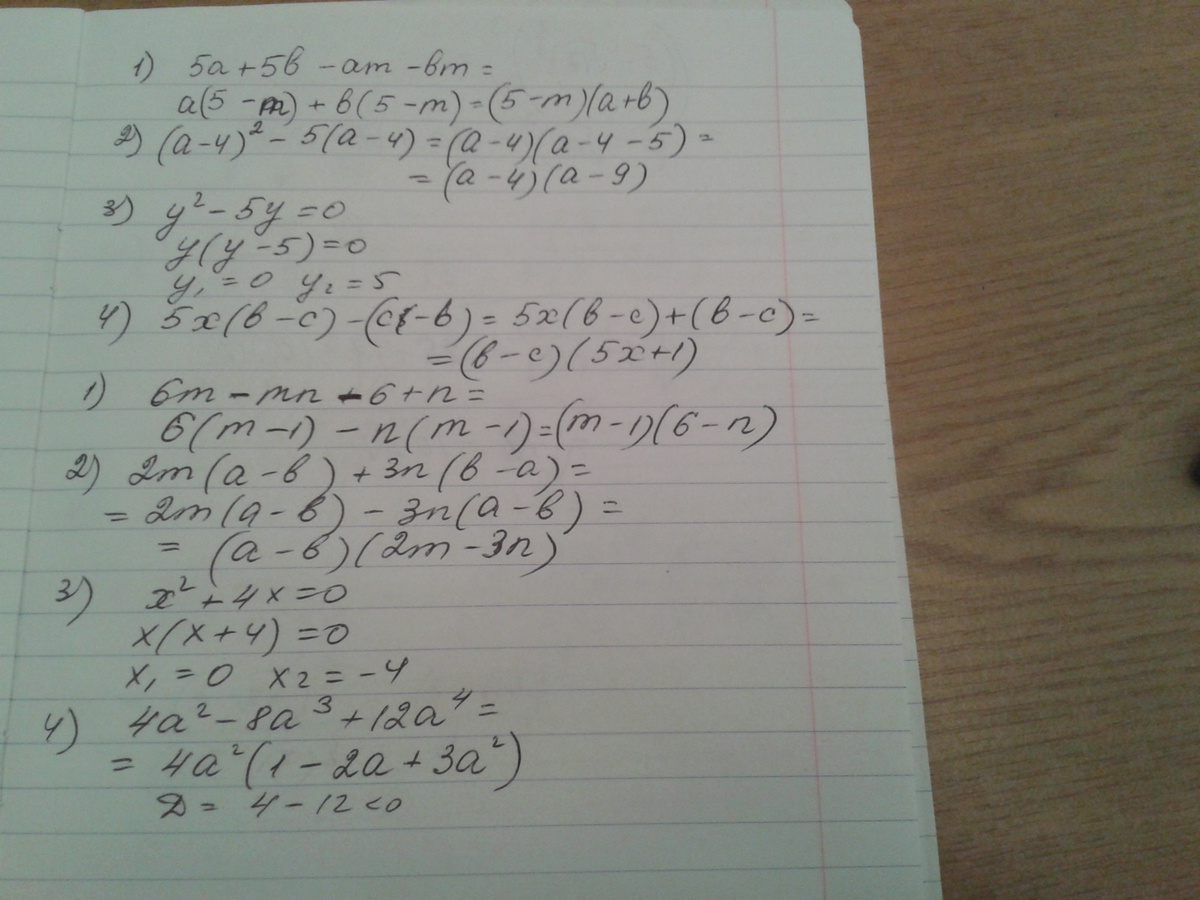 1) 5a+5в-am-вm=
a(5-m)+в(5-m)=(5-m)(a+в)
2) (a-4)²-5(a-4)=(a-4)(a-4-5)=
=(a-4)(a-9)
3) y²-5y=0
y(y-5)=0
y₁=0 y₂=5
4) 5x(в-c)-(c-в)=5x(в-c)+(в-c)=
=(в-c)(5x+1)
1) 6m-mn-6+n=
6(m-1)-n(m-1)=(m-1)(6-n)
2) 2m(a-в)+3n(в-a)=
=2m(a-в)-3n(a-в)=
=(a-в)(2m-3n)
3) x²+4x=0
x(x+4)=0
x₁=0 x₂=-4
4) 4a²-8a³+12a⁴=
=4a²(1-2a+3a²)
D=4-12<0